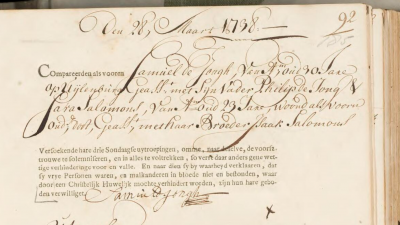 Den 28 Maart 1738. 92
Compareerden als vooren Samuel de Jongh, van A: oud 30 Jare
op Uÿlenburg Geast met syn Vader Philip de Jong &
Sara Salomons, van A: oud 23 Jare, woond als Voorn
Oud, dost, Geast, met haar Broeder Isaak Salomons
Versoekende hare drie Sondaegse uytroepingen, omme, naar deselve, de voorsz.
trouwe te solemniseren, en in alles te voltrekken, so verre daar anders geene wet-
tige verhinderinge voor en valle. En naar dien sy by waarheyd verklaarden, dat
sy vrye Persoonen waren, en malkanderen in bloede niet en bestonden, waar
door een Christelijk Huwelijk mochte verhindert worden, zijn hun hare gebo-
den verwilliget.